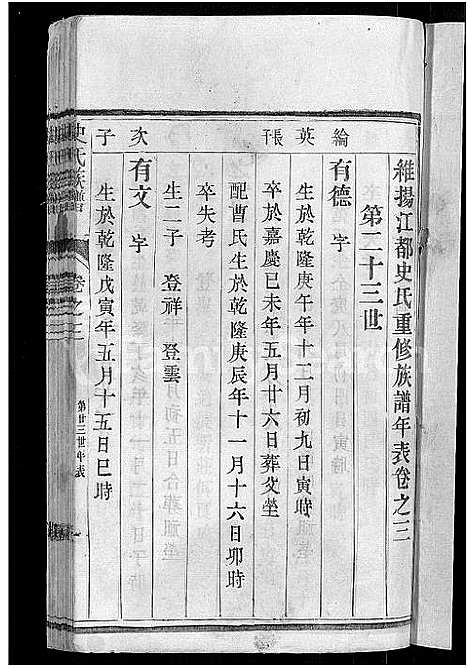 維揚江都史氏重修族譜年表卷之三
第二十三世
綸英長子
有德 字
生於乾隆庚午年十二月初九日寅時
卒於嘉慶己未年五月廿六日葬父塋
配曹氏生於乾隆庚辰年十一月十六日卯時
卒失考
生二子 登祥 登雲
次子
有文 字
生於乾隆戊寅年五月十五日巳時
史氏族譜
卷之三
第廿三世年表